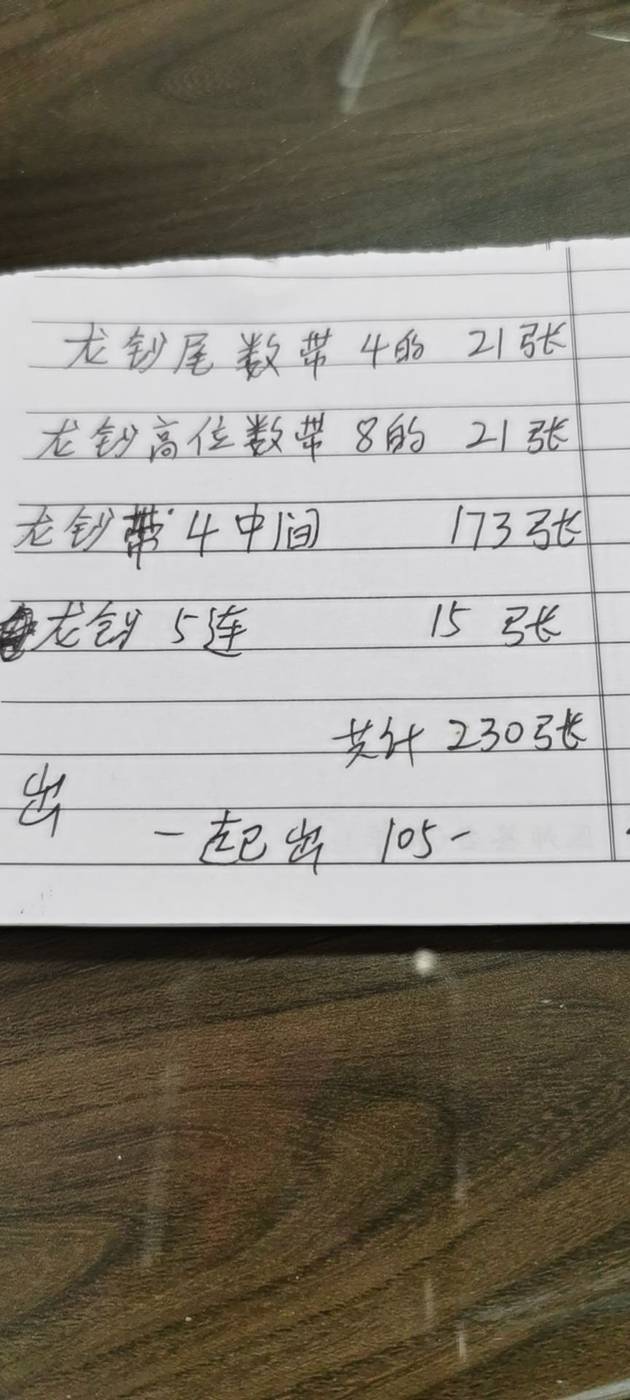 龙钞尾数带4的 21张
龙钞高位数带8的 21张
龙钞带4中间 173张
龙钞5连 15张
共计 230张
出
一起出 105-